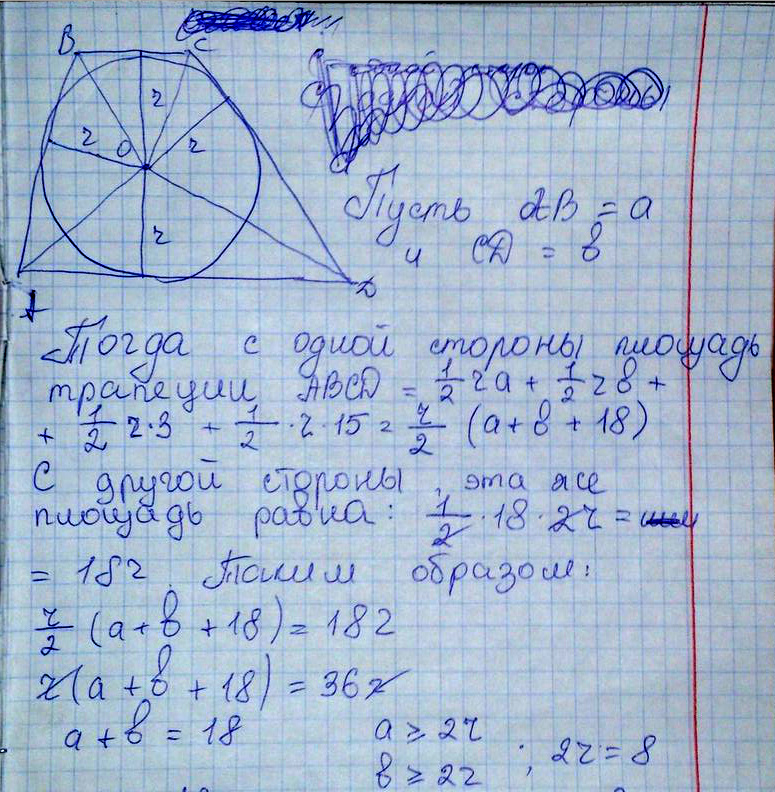 B C
r
r O r
r
A D
Пусть AB = a
и CD = b
Тогда с одной стороны площадь
трапеции ABCD = 1/2 ra + 1/2 rb +
+ 1/2 r·3 + 1/2 · r · 15 = r/2 (a + b + 18)
С другой стороны, эта же
площадь равна: 1/2 · 18 · 2r =
= 18r. Таким образом:
r/2 (a + b + 18) = 18r
r(a + b + 18) = 36r
a + b = 18 a ≥ 2r
b ≥ 2r ; 2r = 8